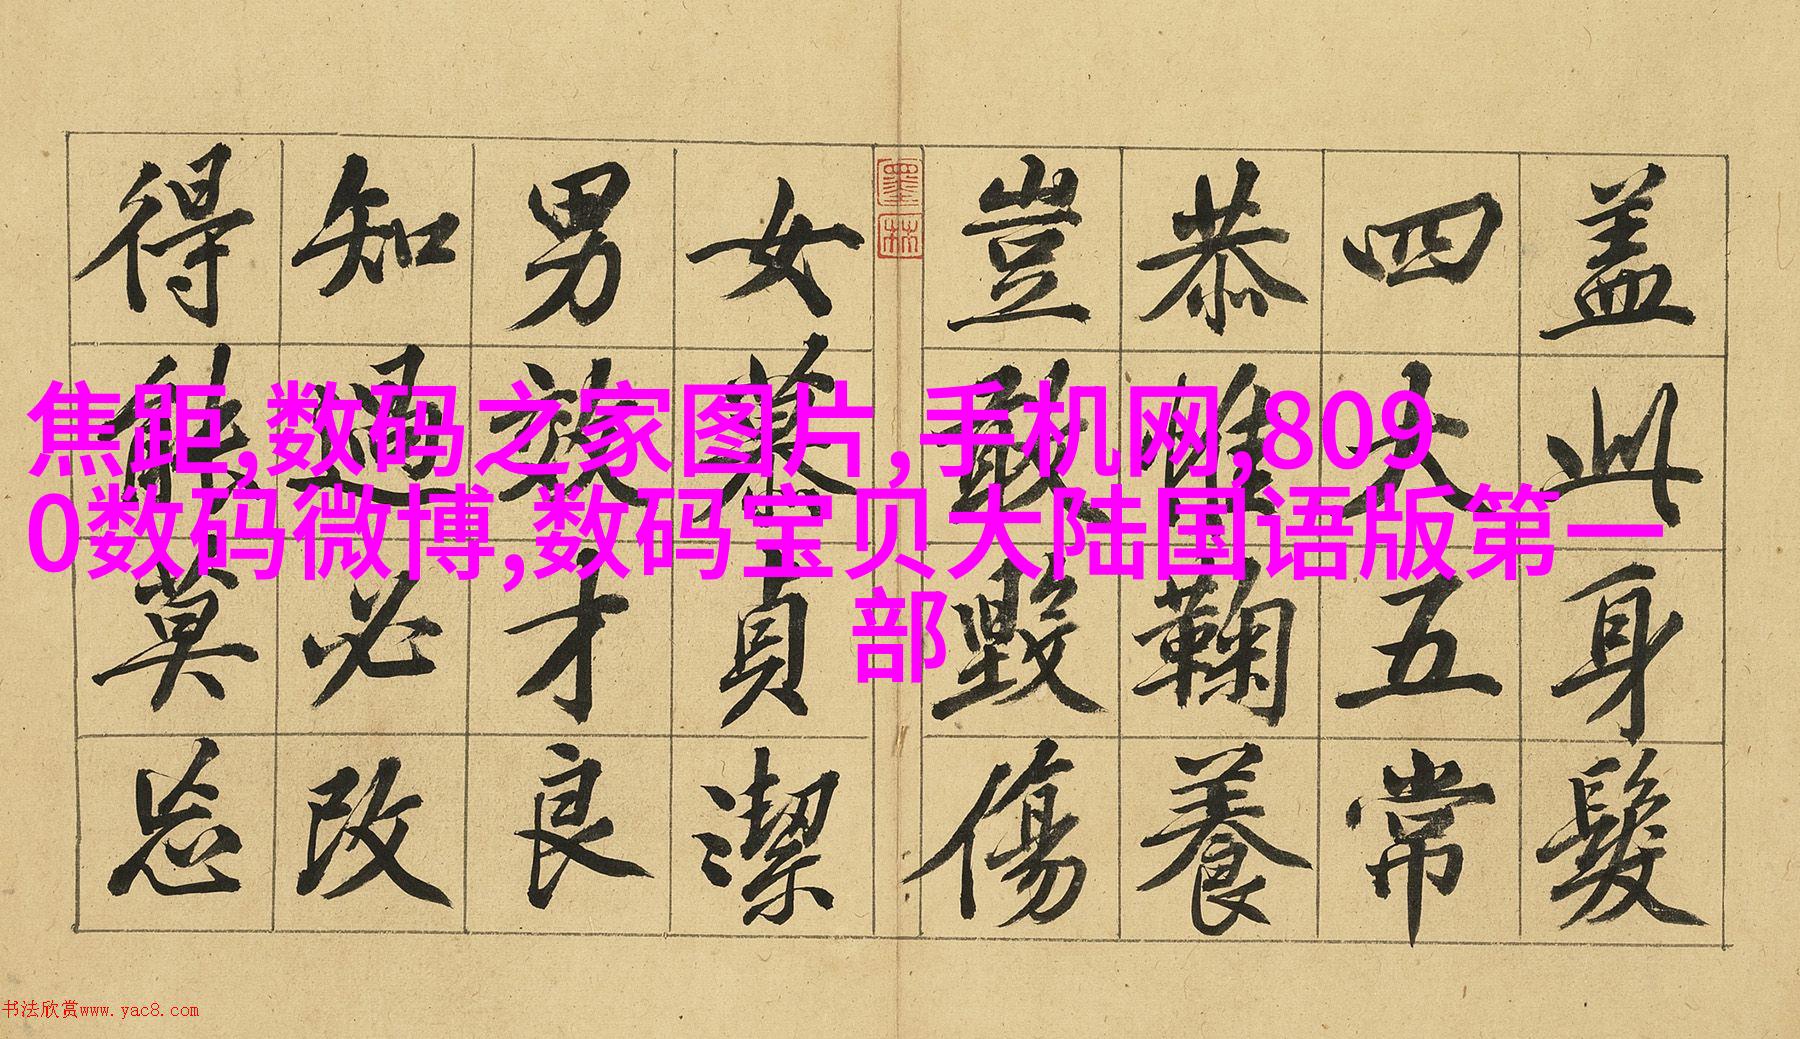 盖此身髮
四大五常
恭惟鞠養
豈敢毀傷
墨林
女慕貞潔
男效才良
知過必改
得能莫忘
焦距,数码之家图片,手机网,809
0数码微博,数码宝贝大陆国语版第一
部
书法欣赏www.yac8.com